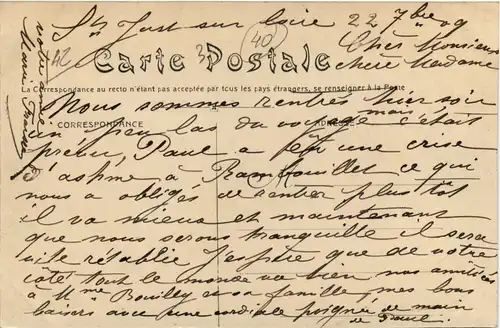 St Just sur Loire 22 7bre 09
42
3
40
Cher Monsieur
chère Madame
Carte Postale
La Correspondance au recto n'étant pas acceptée par tous les pays étrangers, se renseigner à la Poste
Nous sommes rentrés hier soir
CORRESPONDANCE
ADRESSE
un peu las du voyage mais c'était
prévu Paul a eu une crise
d'asthme à Rambouillet ce qui
nous a obligés de rentrer plus tôt
il va mieux et maintenant
que nous serons tranquille il sera
vite rétabli J'espère que de votre
côté tout le monde va bien nos amitiés
à Mme Bouilley et sa famille, mes bons
baisers avec une cordiale poignée de main
de Paul.
votre amie
Marie